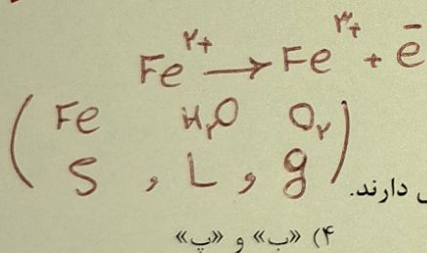 Fe²⁺ → Fe³⁺ + e⁻
(Fe H۲O O۲
S , L , g)
دارند.
۴) «ب» و «پ»